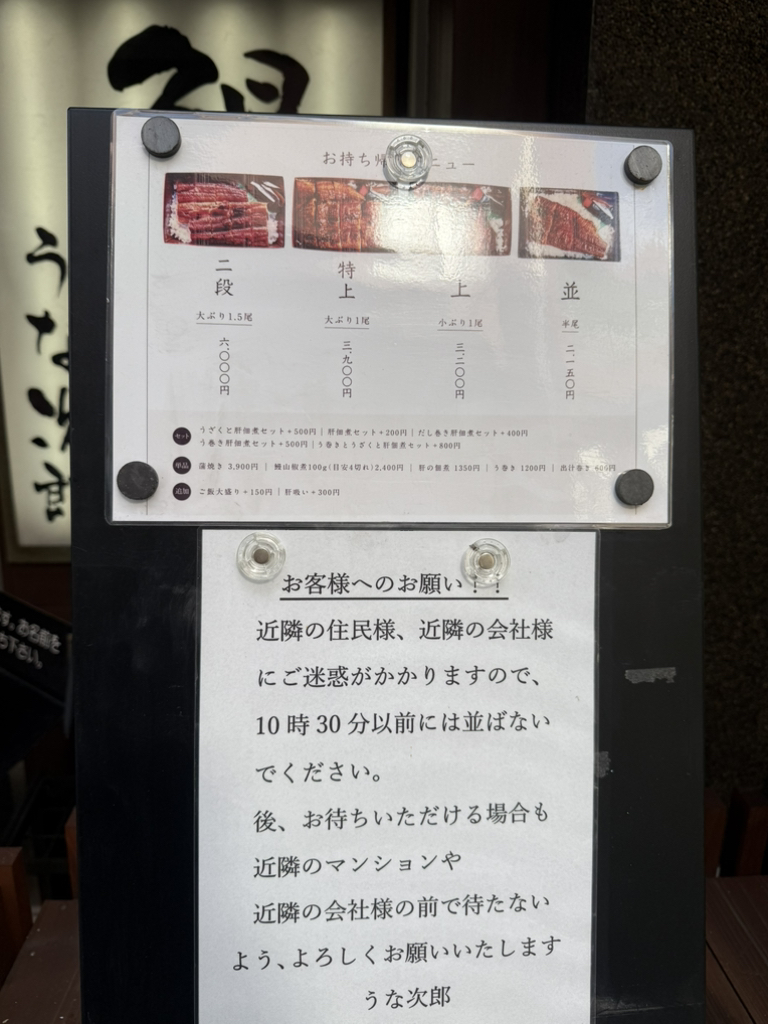 うな次郎
お持ち帰 ニュー
二段
特上
上
並
大ぶり1.5尾
大ぶり1尾
小ぶり1尾
半尾
六.〇〇〇円
三.九〇〇円
三.二〇〇円
二.一五〇円
セット
うざくと肝佃煮セット+500円 | 肝佃煮セット+200円 | だし巻き肝佃煮セット+400円
う巻き肝佃煮セット+500円 | う巻きとうざくと肝佃煮セット+800円
単品 蒲焼き 3,900円 | 鰻山椒煮100g(目安4切れ)2,400円 | 肝の佃煮 1350円 | う巻き 1200円 | 出汁巻き 600円
追加 ご飯大盛り+150円 | 肝吸い+300円
お客様へのお願い!!
近隣の住民様、近隣の会社様
にご迷惑がかかりますので、
10時30分以前には並ばない
でください。
後、お待ちいただける場合も
近隣のマンションや
近隣の会社様の前で待たない
よう、よろしくお願いいたします
うな次郎